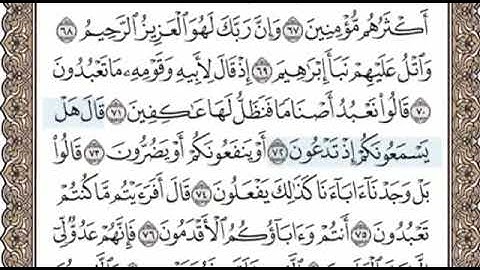 أَكۡثَرُهُم مُّؤۡمِنِينَ ٦٧ وَإِنَّ رَبَّكَ لَهُوَ ٱلۡعَزِيزُ ٱلرَّحِيمُ ٦٨
وَٱتۡلُ عَلَيۡهِمۡ نَبَأَ إِبۡرَٰهِيمَ ٦٩ إِذۡ قَالَ لِأَبِيهِ وَقَوۡمِهِۦ مَا تَعۡبُدُونَ
٧٠ قَالُواْ نَعۡبُدُ أَصۡنَامٗا فَنَظَلُّ لَهَا عَٰكِفِينَ ٧١ قَالَ هَلۡ
يَسۡمَعُونَكُمۡ إِذۡ تَدۡعُونَ ٧٢ أَوۡ يَنفَعُونَكُمۡ أَوۡ يَضُرُّونَ ٧٣ قَالُواْ
بَلۡ وَجَدۡنَآ ءَابَآءَنَا كَذَٰلِكَ يَفۡعَلُونَ ٧٤ قَالَ أَفَرَءَيۡتُم مَّا كُنتُمۡ
تَعۡبُدُونَ ٧٥ أَنتُمۡ وَءَابَآؤُكُمُ ٱلۡأَقۡدَمُونَ ٧٦ فَإِنَّهُمۡ عَدُوّٞ لِّيٓ